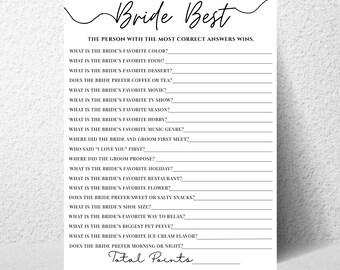 Bride Best
THE PERSON WITH THE MOST CORRECT ANSWERS WINS.
WHAT IS THE BRIDE'S FAVORITE COLOR?
WHAT IS THE BRIDE'S FAVORITE FOOD?
WHAT IS THE BRIDE'S FAVORITE DESSERT?
DOES THE BRIDE PREFER COFFEE OR TEA?
WHAT IS THE BRIDE'S FAVORITE MOVIE?
WHAT IS THE BRIDE'S FAVORITE TV SHOW?
WHAT IS THE BRIDE'S FAVORITE SEASON?
WHAT IS THE BRIDE'S FAVORITE HOBBY?
WHAT IS THE BRIDE'S FAVORITE MUSIC GENRE?
WHERE DID THE BRIDE AND GROOM FIRST MEET?
WHO SAID "I LOVE YOU" FIRST?
WHERE DID THE GROOM PROPOSE?
WHAT IS THE BRIDE'S FAVORITE HOLIDAY?
WHAT IS THE BRIDE'S FAVORITE RESTAURANT?
WHAT IS THE BRIDE'S FAVORITE FLOWER?
DOES THE BRIDE PREFER SWEET OR SALTY SNACKS?
WHAT IS THE BRIDE'S SHOE SIZE?
WHAT IS THE BRIDE'S FAVORITE WAY TO RELAX?
WHAT IS THE BRIDE'S BIGGEST PET PEEVE?
WHAT IS THE BRIDE'S FAVORITE ICE CREAM FLAVOR?
DOES THE BRIDE PREFER MORNING OR NIGHT?
Total Points